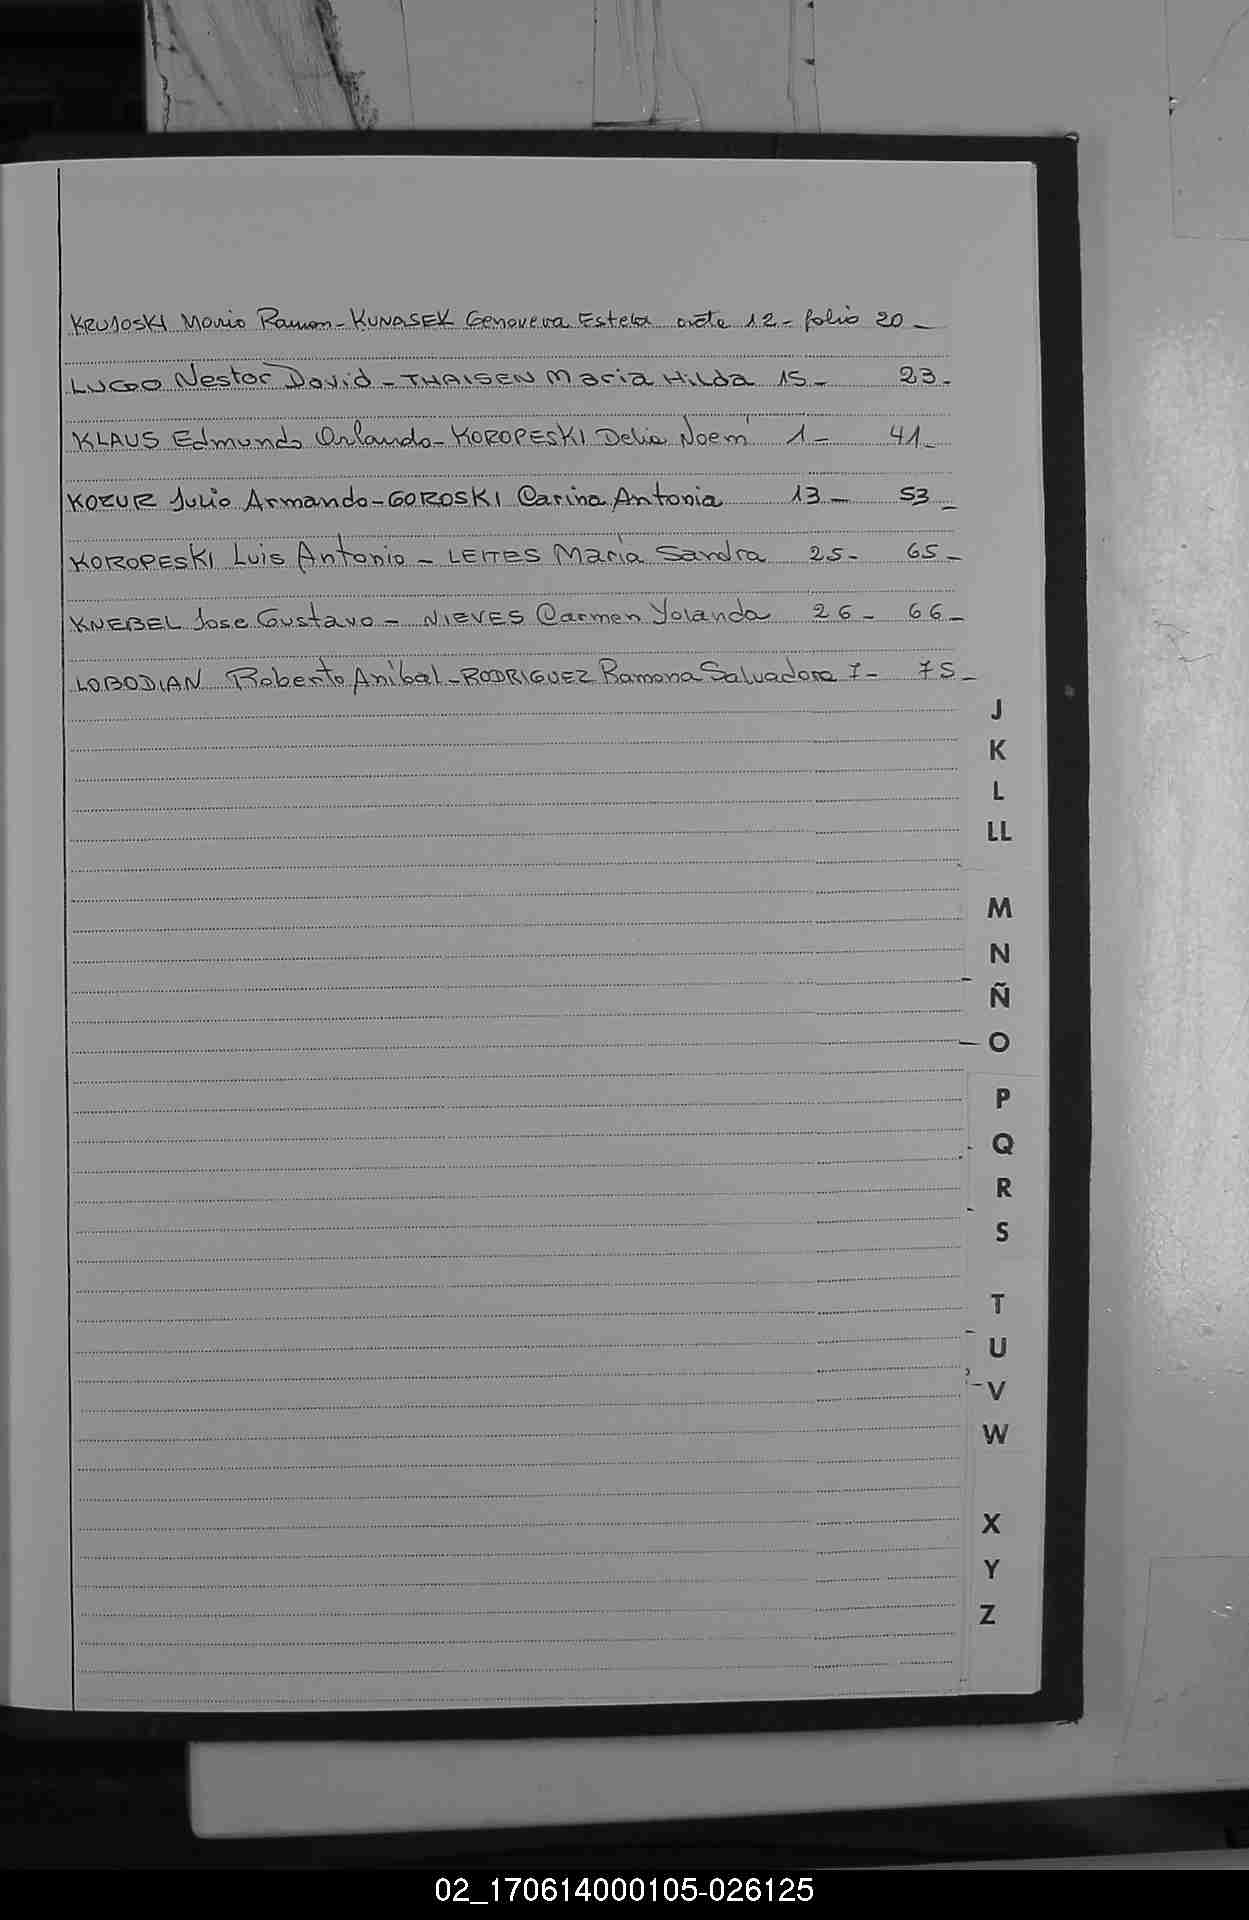 KRUJOSKI Mario Ramon - KUNASEK Genoveva Estela acta 12 - folio 20 -
LUGO Nestor David - THAISEN Maria Hilda 15 - 23 -
KLAUS Edmundo Orlando - KOROPESKI Delia Noemí 1 - 41 -
KOZUR Julio Armando - GOROSKI Carina Antonia 13 - 53 -
KOROPESKI Luis Antonio - LEITES María Sandra 25 - 65 -
KNEBEL Jose Gustavo - NIEVES Carmen Yolanda 26 - 66 -
LOBODIAN Roberto Anibal - RODRIGUEZ Ramona Salvadora 7 - 75 -
J
K
L
LL
M
N
Ñ
O
P
Q
R
S
T
U
V
W
X
Y
Z
02_170614000105-026125